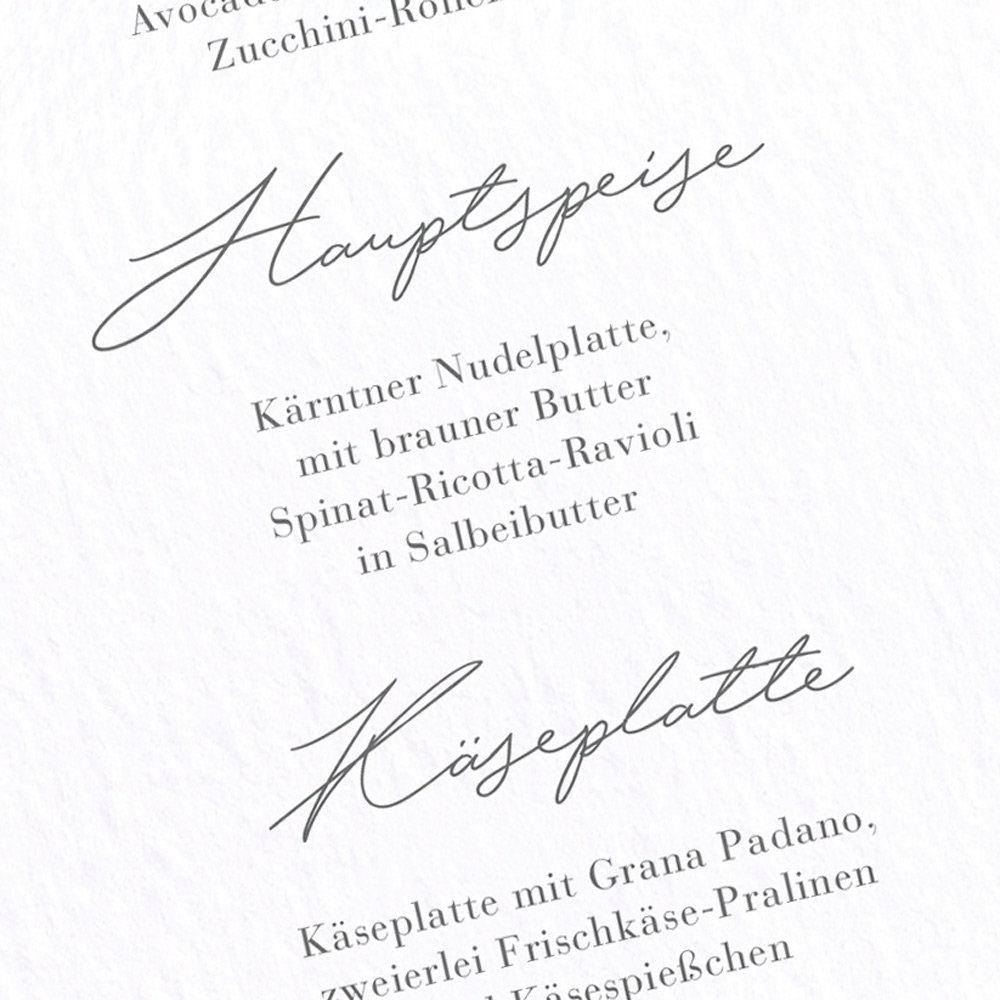 Zucchini-
Hauptspeise
Kärntner Nudelplatte,
mit brauner Butter
Spinat-Ricotta-Ravioli
in Salbeibutter
Käseplatte
Käseplatte mit Grana Padano,
zweierlei Frischkäse-Pralinen
Käsespießchen